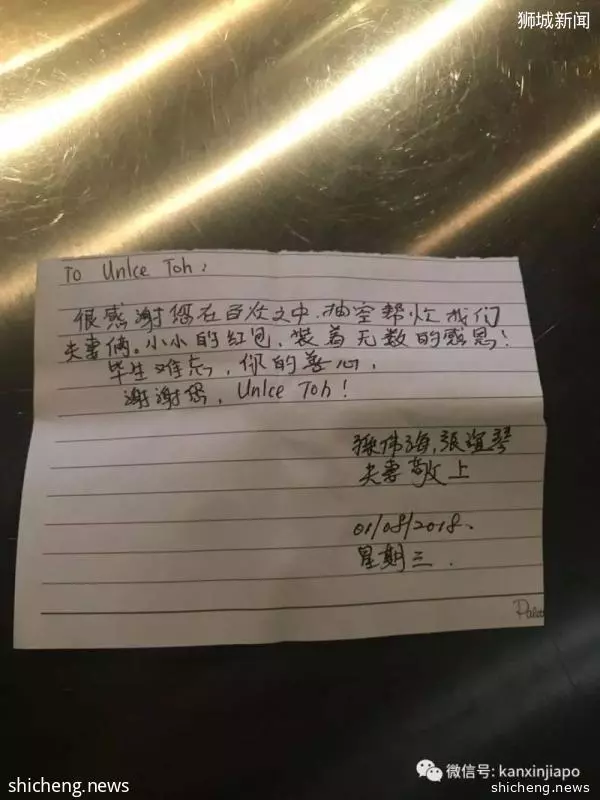 狮城新闻
To Unlce Toh:
很感谢您在百忙之中,抽空帮忙我们
夫妻俩。小小的红包,装着无数的感恩!
毕生难忘,你的善心,
谢谢您,Unlce Toh!
孫伟海,張谊琴
夫妻敬上
01/08/2018.
星期三.
微信号: kanxinjiapo
shicheng.news
shicheng.news